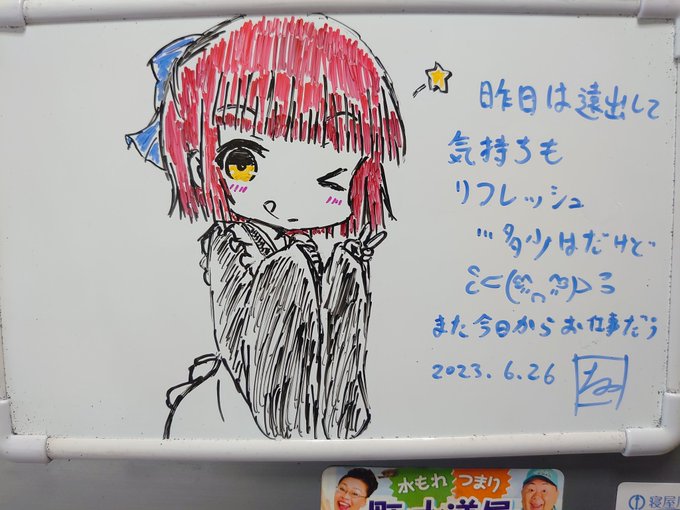 昨日は遠出して
気持ちも
リフレッシュ
多少はだけど
また今日からお仕事だぅ
2023.6.26
水もれ
つまり
町水道屋
寝屋